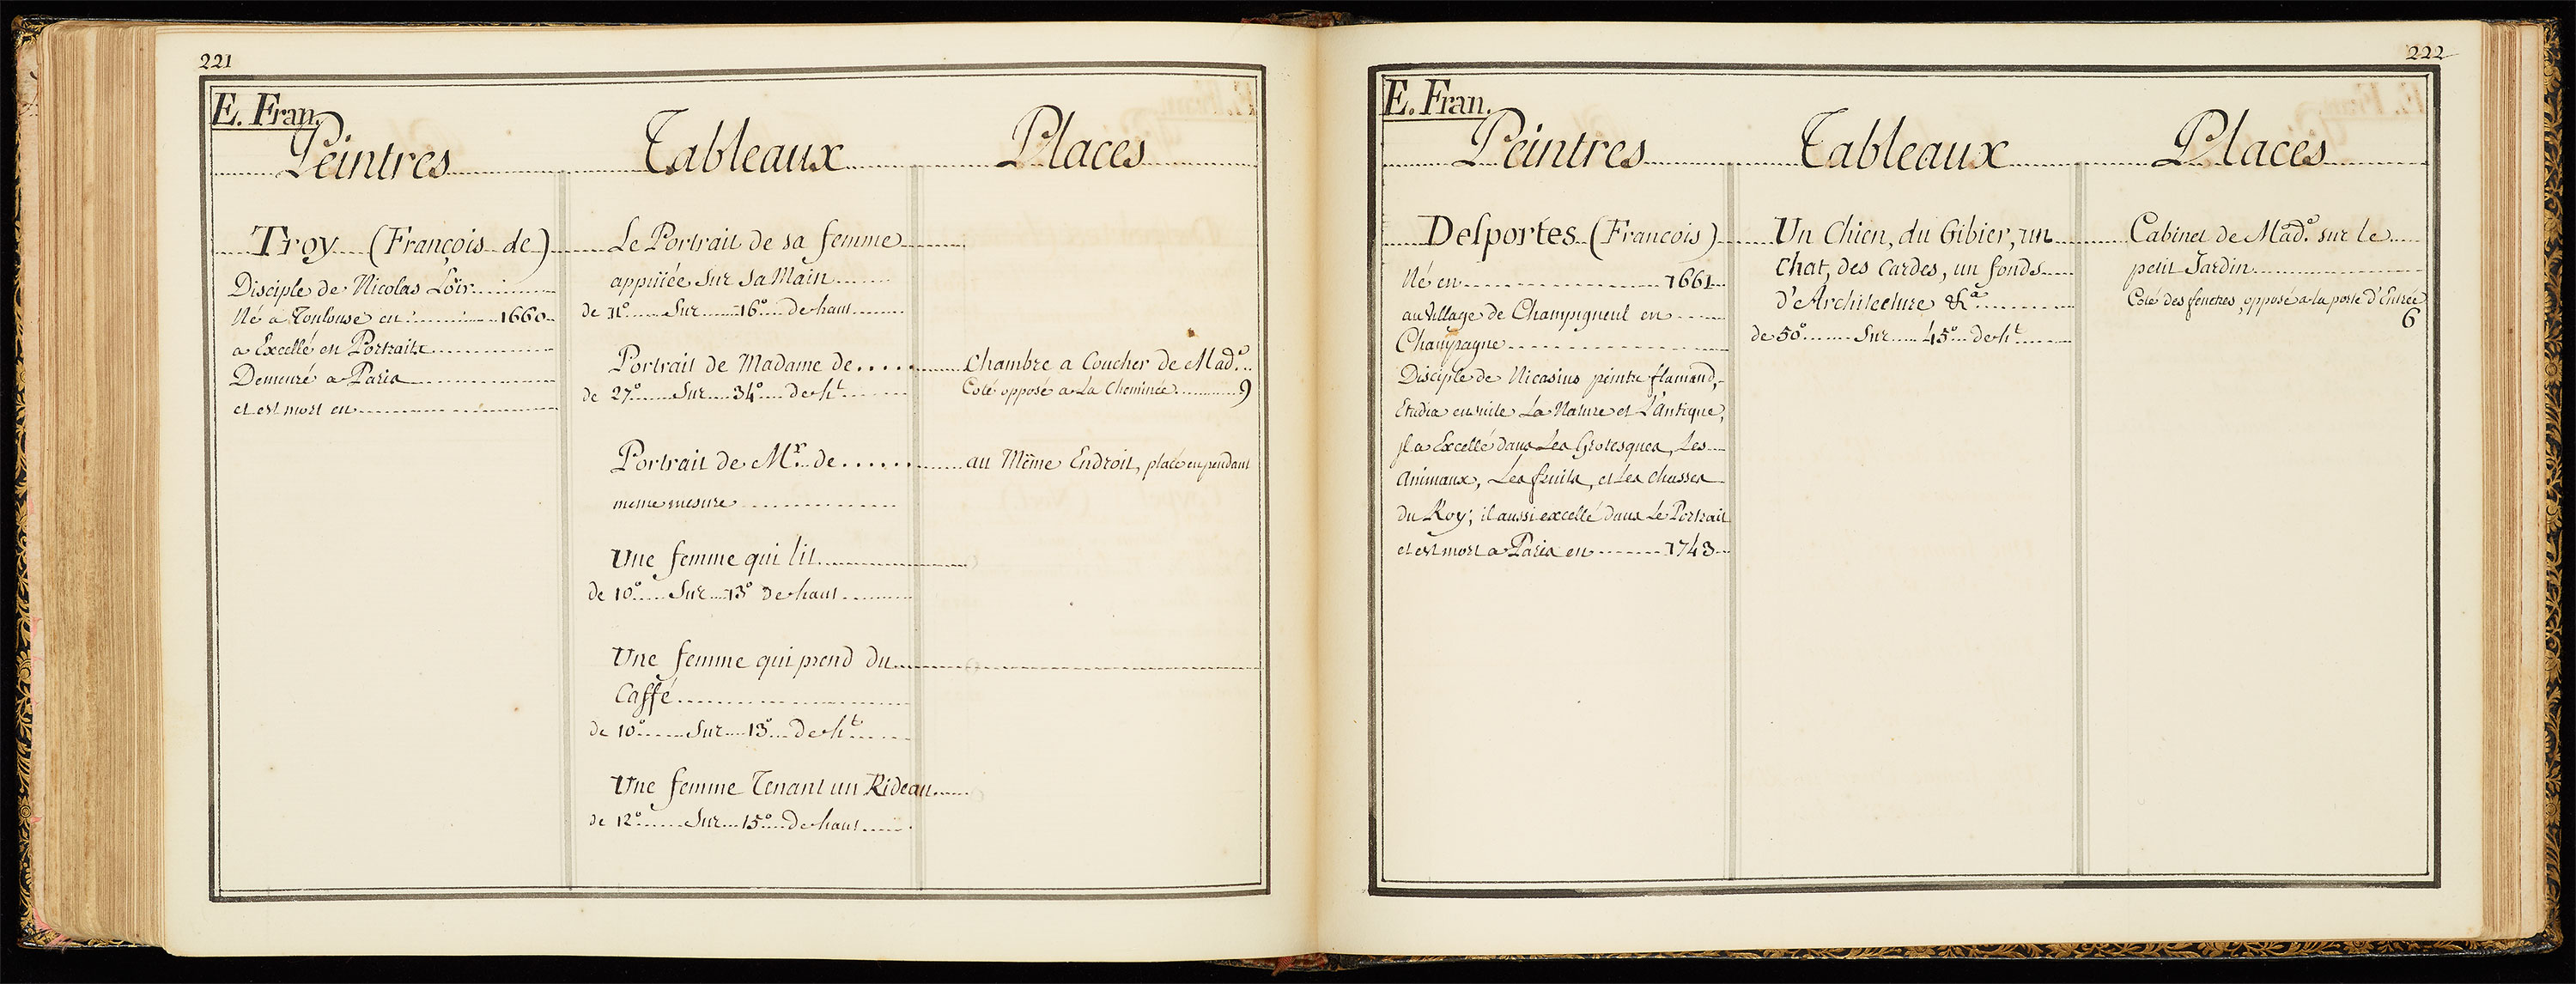 221
E. Fran.
Peintres Tableaux Places
Troy (François de)
Disciple de Nicolas Loir
Né a Toulouse en 1660
a Excellé en Portraits
Demeuré a Paris
et est mort en
Le Portrait de sa femme
appuiée Sur Sa Main
de 11° Sur 16° de haut
Portrait de Madame de.....
de 27° Sur 34° de ht
Portrait de Mr. de......
meme mesure
Une femme qui lit
de 10° Sur 13° de haut
Une femme qui prend du
Caffé
de 10° Sur 13° de ht
Une femme Tenant un Rideau
de 12° Sur 15° de haut
Chambre a Coucher de Made.
Coté opposé a La Cheminée 9
au Même Endroit, placé en pendant
222
E. Fran.
Peintres Tableaux Places
Desportes (Francois)
Né en 1661
au Village de Champigneul en
Champagne
Disciple de Nicasius peintre flamand,
Etudia ensuite La Nature et L'Antique,
jl a Excellé dans Les Grotesques, Les
animaux, Les fruits, et Les Chasses
du Roy; il aussi excellé dans Le Portrait
et est mort a Paris en 1743
Un Chien, du Gibier, un
Chat, des Cardes, un fonds
d'Architecture &ca
de 50° Sur 45° de ht
Cabinet de Made. sur le
petit Jardin
Coté des fenetres, opposé a la porte d'Entrée
6